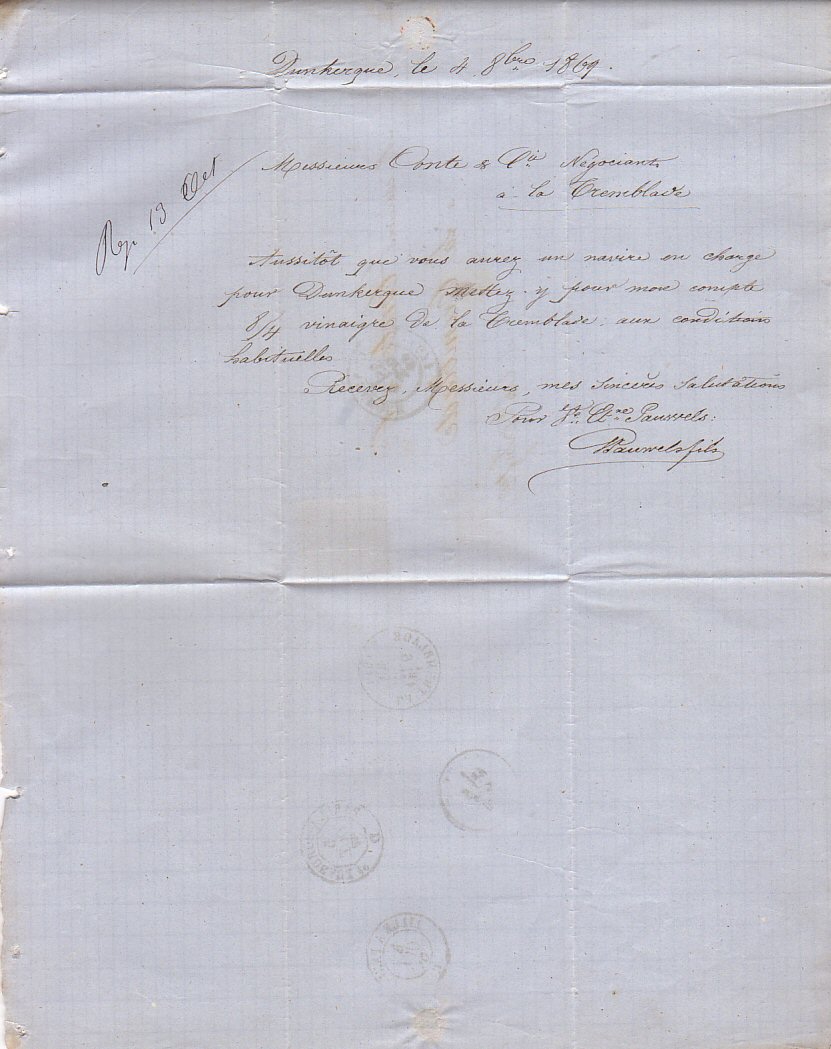 Dunkerque, le 4 8bre 1869.
Messieurs Conte & Cie Négociants
à la Tremblade
Rep. 13 Oct
Aussitôt que vous aurez un navire en charge
pour Dunkerque mettez-y pour mon compte
8/4 vinaigre de la Tremblade aux conditions
habituelles
Recevez, Messieurs, mes sincères salutations
Pour Pauwels.
Pauwels fils